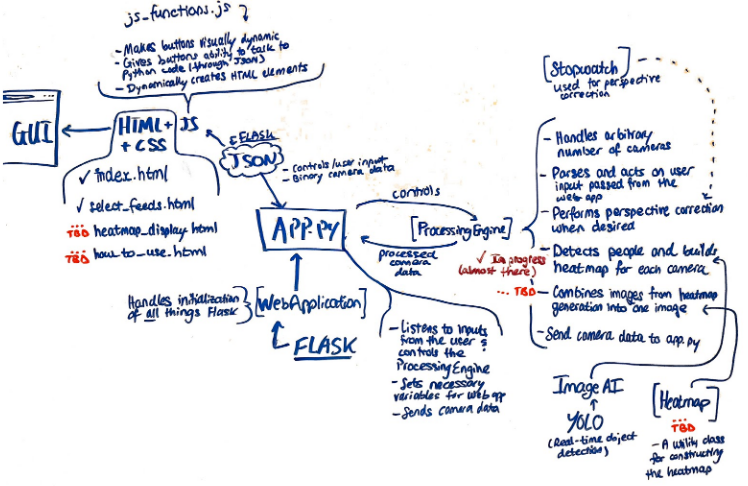 js_functions.js
- Makes buttons visually dynamic
- Gives buttons ability to talk to
Python code (through JSON)
- Dynamically creates HTML elements
GUI
HTML + JS
+ CSS
✓ index.html
✓ select_feeds.html
TBD heatmap_display.html
TBD how_to_use.html
FLASK
JSON
- Controls/user input
- Binary camera data
APP.PY
controls
processed
camera
data
[ProcessingEngine]
Handles initialization
of all things Flask
[WebApplication]
FLASK
- Listens to inputs
from the user &
controls the
ProcessingEngine
- Sets necessary
variables for web app
- Sends camera data
[Stopwatch]
used for perspective
correction
- Handles arbitrary
number of cameras
- Parses and acts on user
input passed from the
web app
- Performs perspective correction
when desired
✓ In progress
(almost there)
- Detects people and builds
heatmap for each camera
... TBD
- Combines images from heatmap
generation into one image
- Send camera data to app.py
Image AI
YOLO
(Real-time object
detection)
[Heatmap]
TBD
- A utility class
for constructing
the heatmap